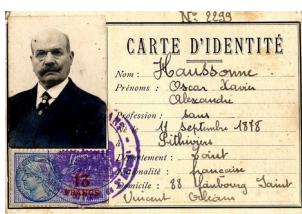 N° 2299
CARTE D'IDENTITÉ
Nom : Haussonne
Prénoms : Oscar Xavier
Alexandre
Profession : sans
11 Septembre 1878
Pithiviers
Département : Loiret
Nationalité : française
Domicile : 88 Faubourg Saint
Vincent Orléans
13
FRANCS